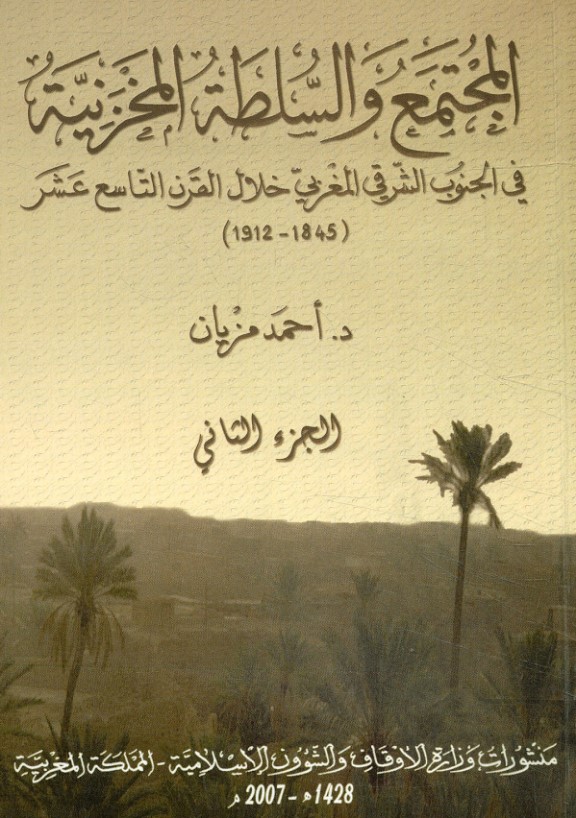 المجْتمَع وَالسُّلطَة المخزَنيَّة
في الجنوب الشرقي المغربيّ خلال القرن التاسع عَشَر
(1845 - 1912)
د. أحمَد مزيان
الجزء الثاني
منشورات وزارة الأوقاف والشؤون الإسلامية - المملكة المغربية
1428 هـ - 2007 م